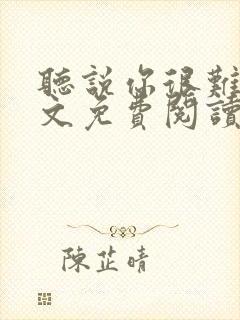 聽說你很難
文免費閱讀
陳芷晴